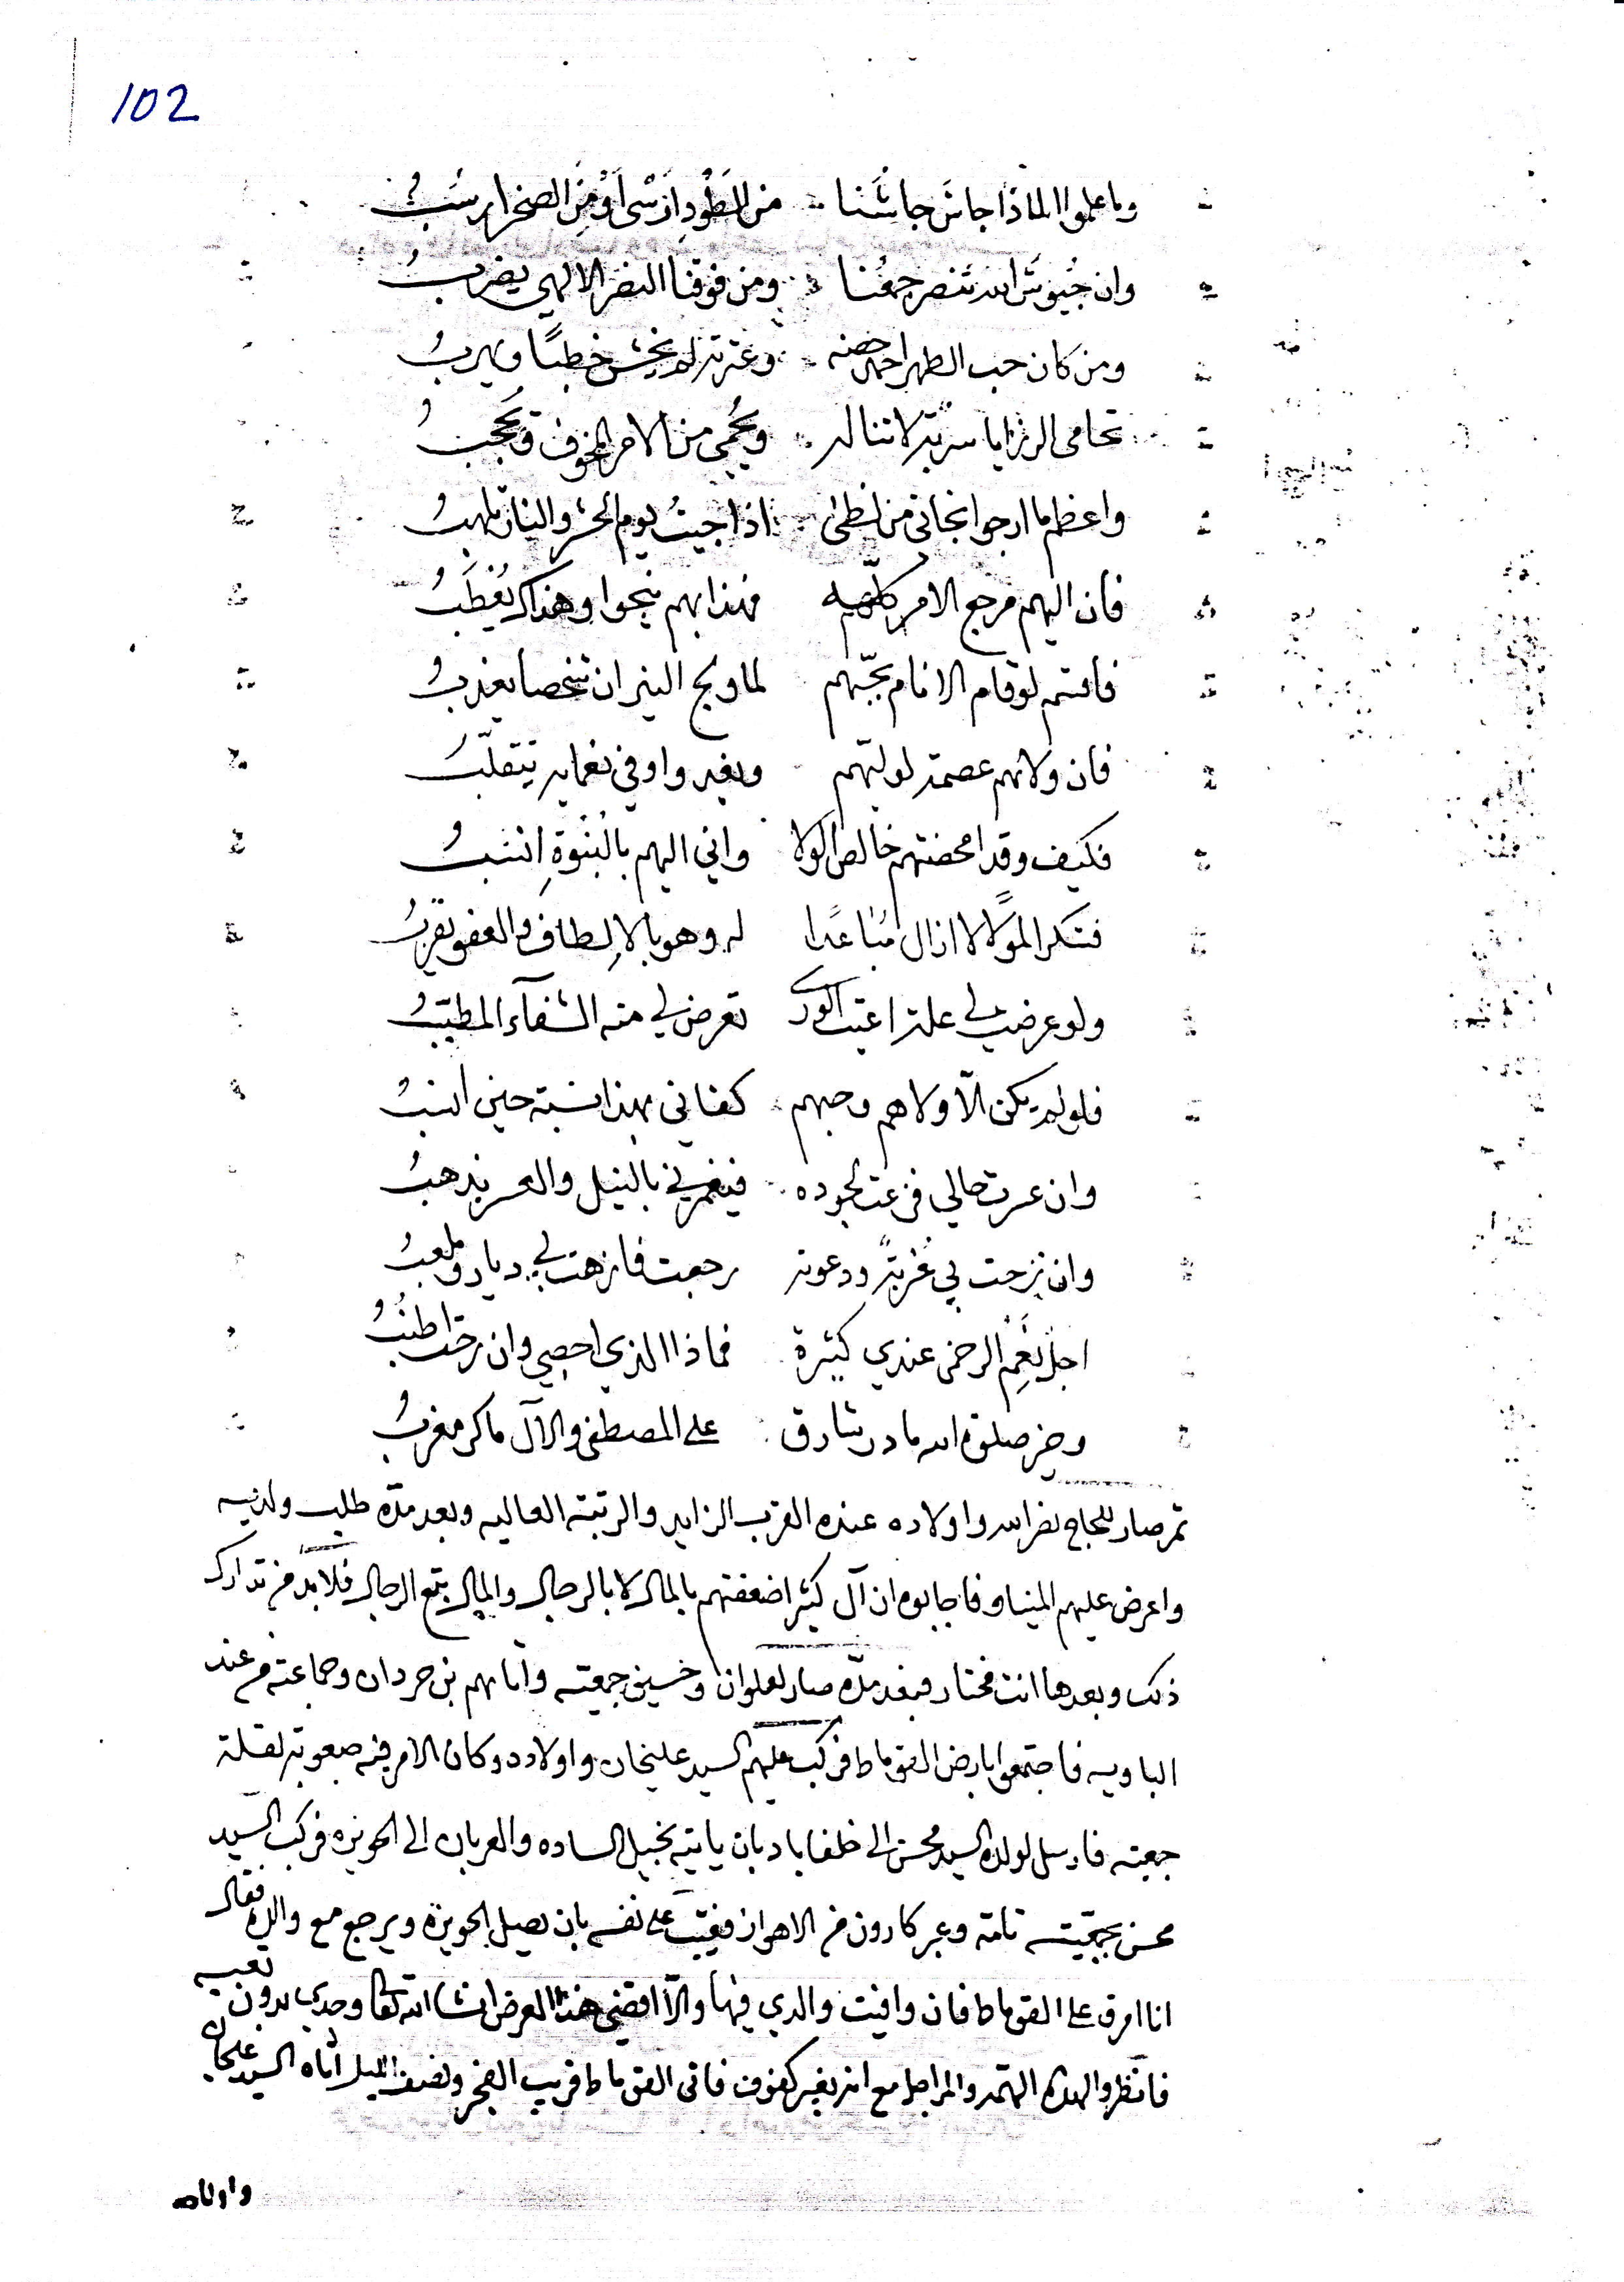 102
وما علموا لماذا جاش جاشنا من الطود ارسى او من الصخر ارسب
وان جيوش الله تنصر جمعنا ومن فوقنا النصر الالهي يضرب
ومن كان حب الطهر احمد حصنه وعترته لم يخش خطبًا ويرهب
تحامى الرزايا سربه لا تناله ويحمى من الامر المخوف ويحجب
واعظم ما ارجوا نجاتي من لظى اذا جيت يوم الحشر والنار تلهب
فان اليهم مرجع الامر كله فهذا بهم ينجوا وهذاك يعطب
فاقسم لو قام الانام بحبهم لما ولج النيران شخصا يعذب
فان ولائهم عصمة لوليهم ويغدوا وفي نعمايه يتقلب
فكيف وقد امحضتهم خالص الولا واني اليهم بالبنوة انسب
فشكرا لمولا لا ازال مباعدا له وهو بالالطاف والعفو يقرب
ولو عرضت لي علة اعيت الورى تعرض لي منه الشفآء المطبب
فلو لم يكن الّا ولاهم وحبهم كفاني بهذا نسبة حين انسب
وان عسرت حالي فزعت لجوده فيغمرني بالنيل والعسر يذهب
وان نزحت بي غربة ودعوته رجعت فازهت بي ديار وملعب
اجل نعم الرحمن عندي كثيرة فماذا الذي احصي وان رحت اطنب
وخير صلوة الله ما در شارق على المصطفى والآل ما كر مغرب
ثم صار للحاج نصر الله واولاده عنده القرب الزايد والرتبة العاليه وبعد مدة طلب ولديه
واعرض عليهم المنياو فاجابوه ان آل كثير اضعفتهم بالمال لا بالرجال والمال يتبع الرجال فلا بد من تدارك
ذلك وبعدها انت مختار فبعد مدة صار لعلوان وخسين جمعته واتاهم بن حردان وجماعته من عند
الباويه فاجتمعوا بارض القوماط فركب عليهم السيد عليخان واولاده وكان الامر فيه صعوبة لقلة
جمعته فارسل لولده السيد محسن الى خلفاباد بان ياتيه بخيل الساده والعربان الى الحويزه فركب السيد
محسن بجمعيته تامة وعبر كارون من الاهواز فغيّب على نفسه بان يصل الحويزه ويرجع مع والده فقال
انا امرق على القوماط فان وافيت والدي فيها والّا اقضي هذا الغرض انشا الله تعالى وحدي بدون تعبه
فانظر والهذه الهمه والمراجل مع انه بغير كفوف فاتى القوماط قريب الفجر ونصف الليل اتاه السيد عليخان
واولاده